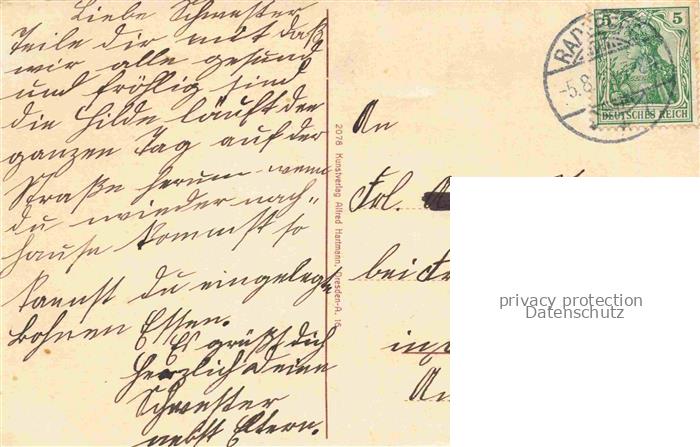 Liebe Schwester
Teile dir mit daß
wir alle gesund
und fröhlig sind
die Hilde läuft den
ganzen Tag auf der
Straße herum wenn
du wieder nach„
hause kommst so
kannst du eingelegte
Bohnen Essen.
Es grüßt dich
herzlich deine
Schwester
nebst Eltern.
2078 Kunstverlag Alfred Hartmann, Dresden-A. 16
5 5
DEUTSCHES REICH
RAD
-5.8
An
Frl.
bei Fr
in
privacy protection
Datenschutz